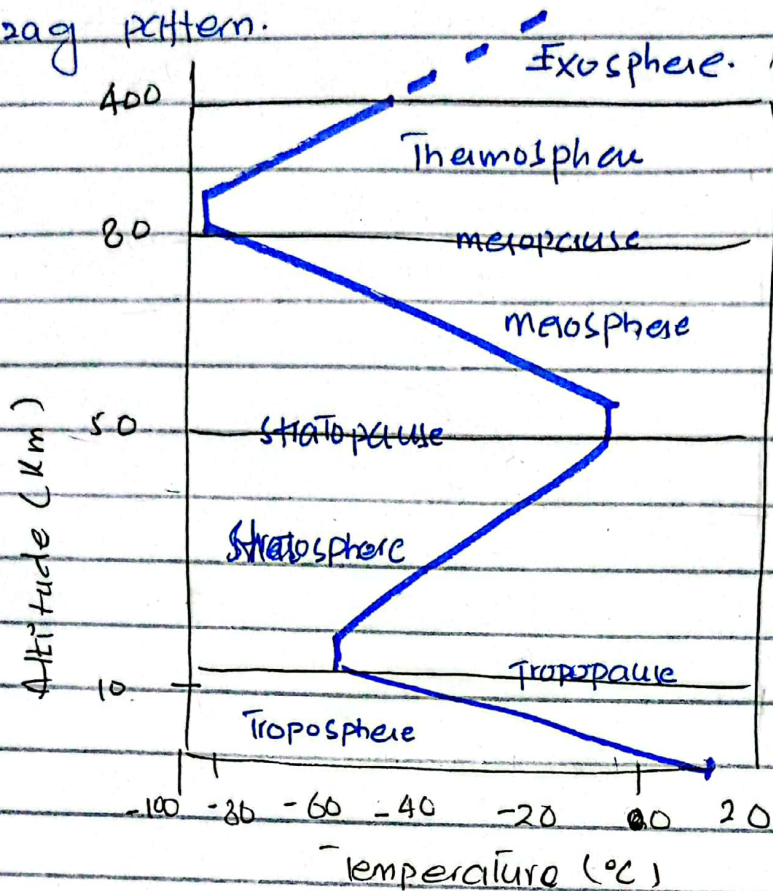 zag pattern.
Exosphere.
400
Thermosphere
80
mesopause
mesosphere
50
stratopause
Stratosphere
Altitude (Km)
10
Tropopause
Troposphere
-100 -80 -60 -40 -20 00 20
Temperature (°C)